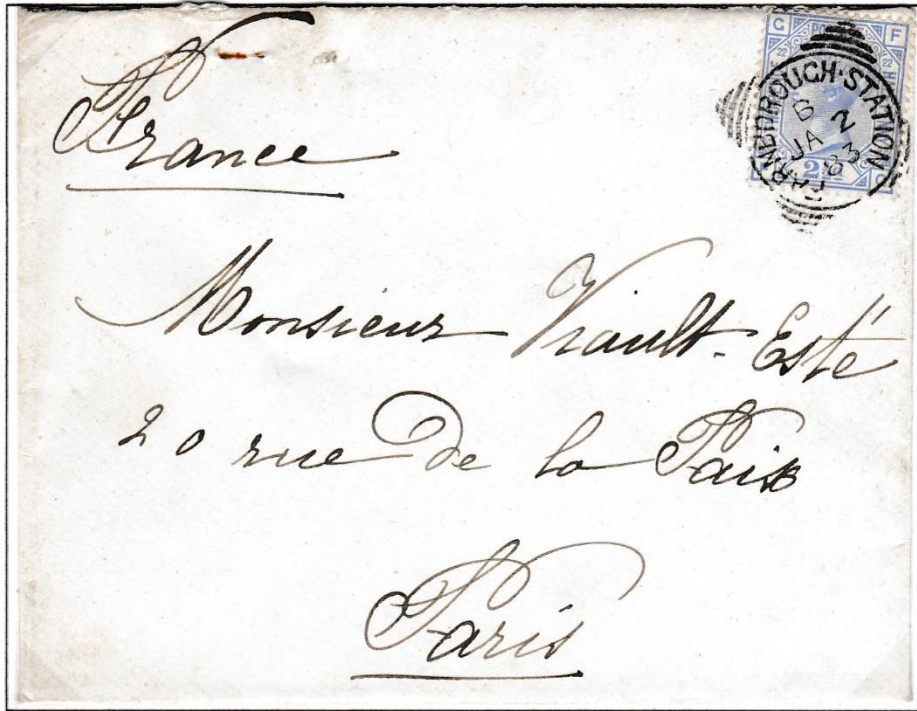 France
G F
22
FARNBOROUGH·STATION
B 2
JA
83
2½
G
Monsieur Viault-Esté
20 rue de la Paix
Paris